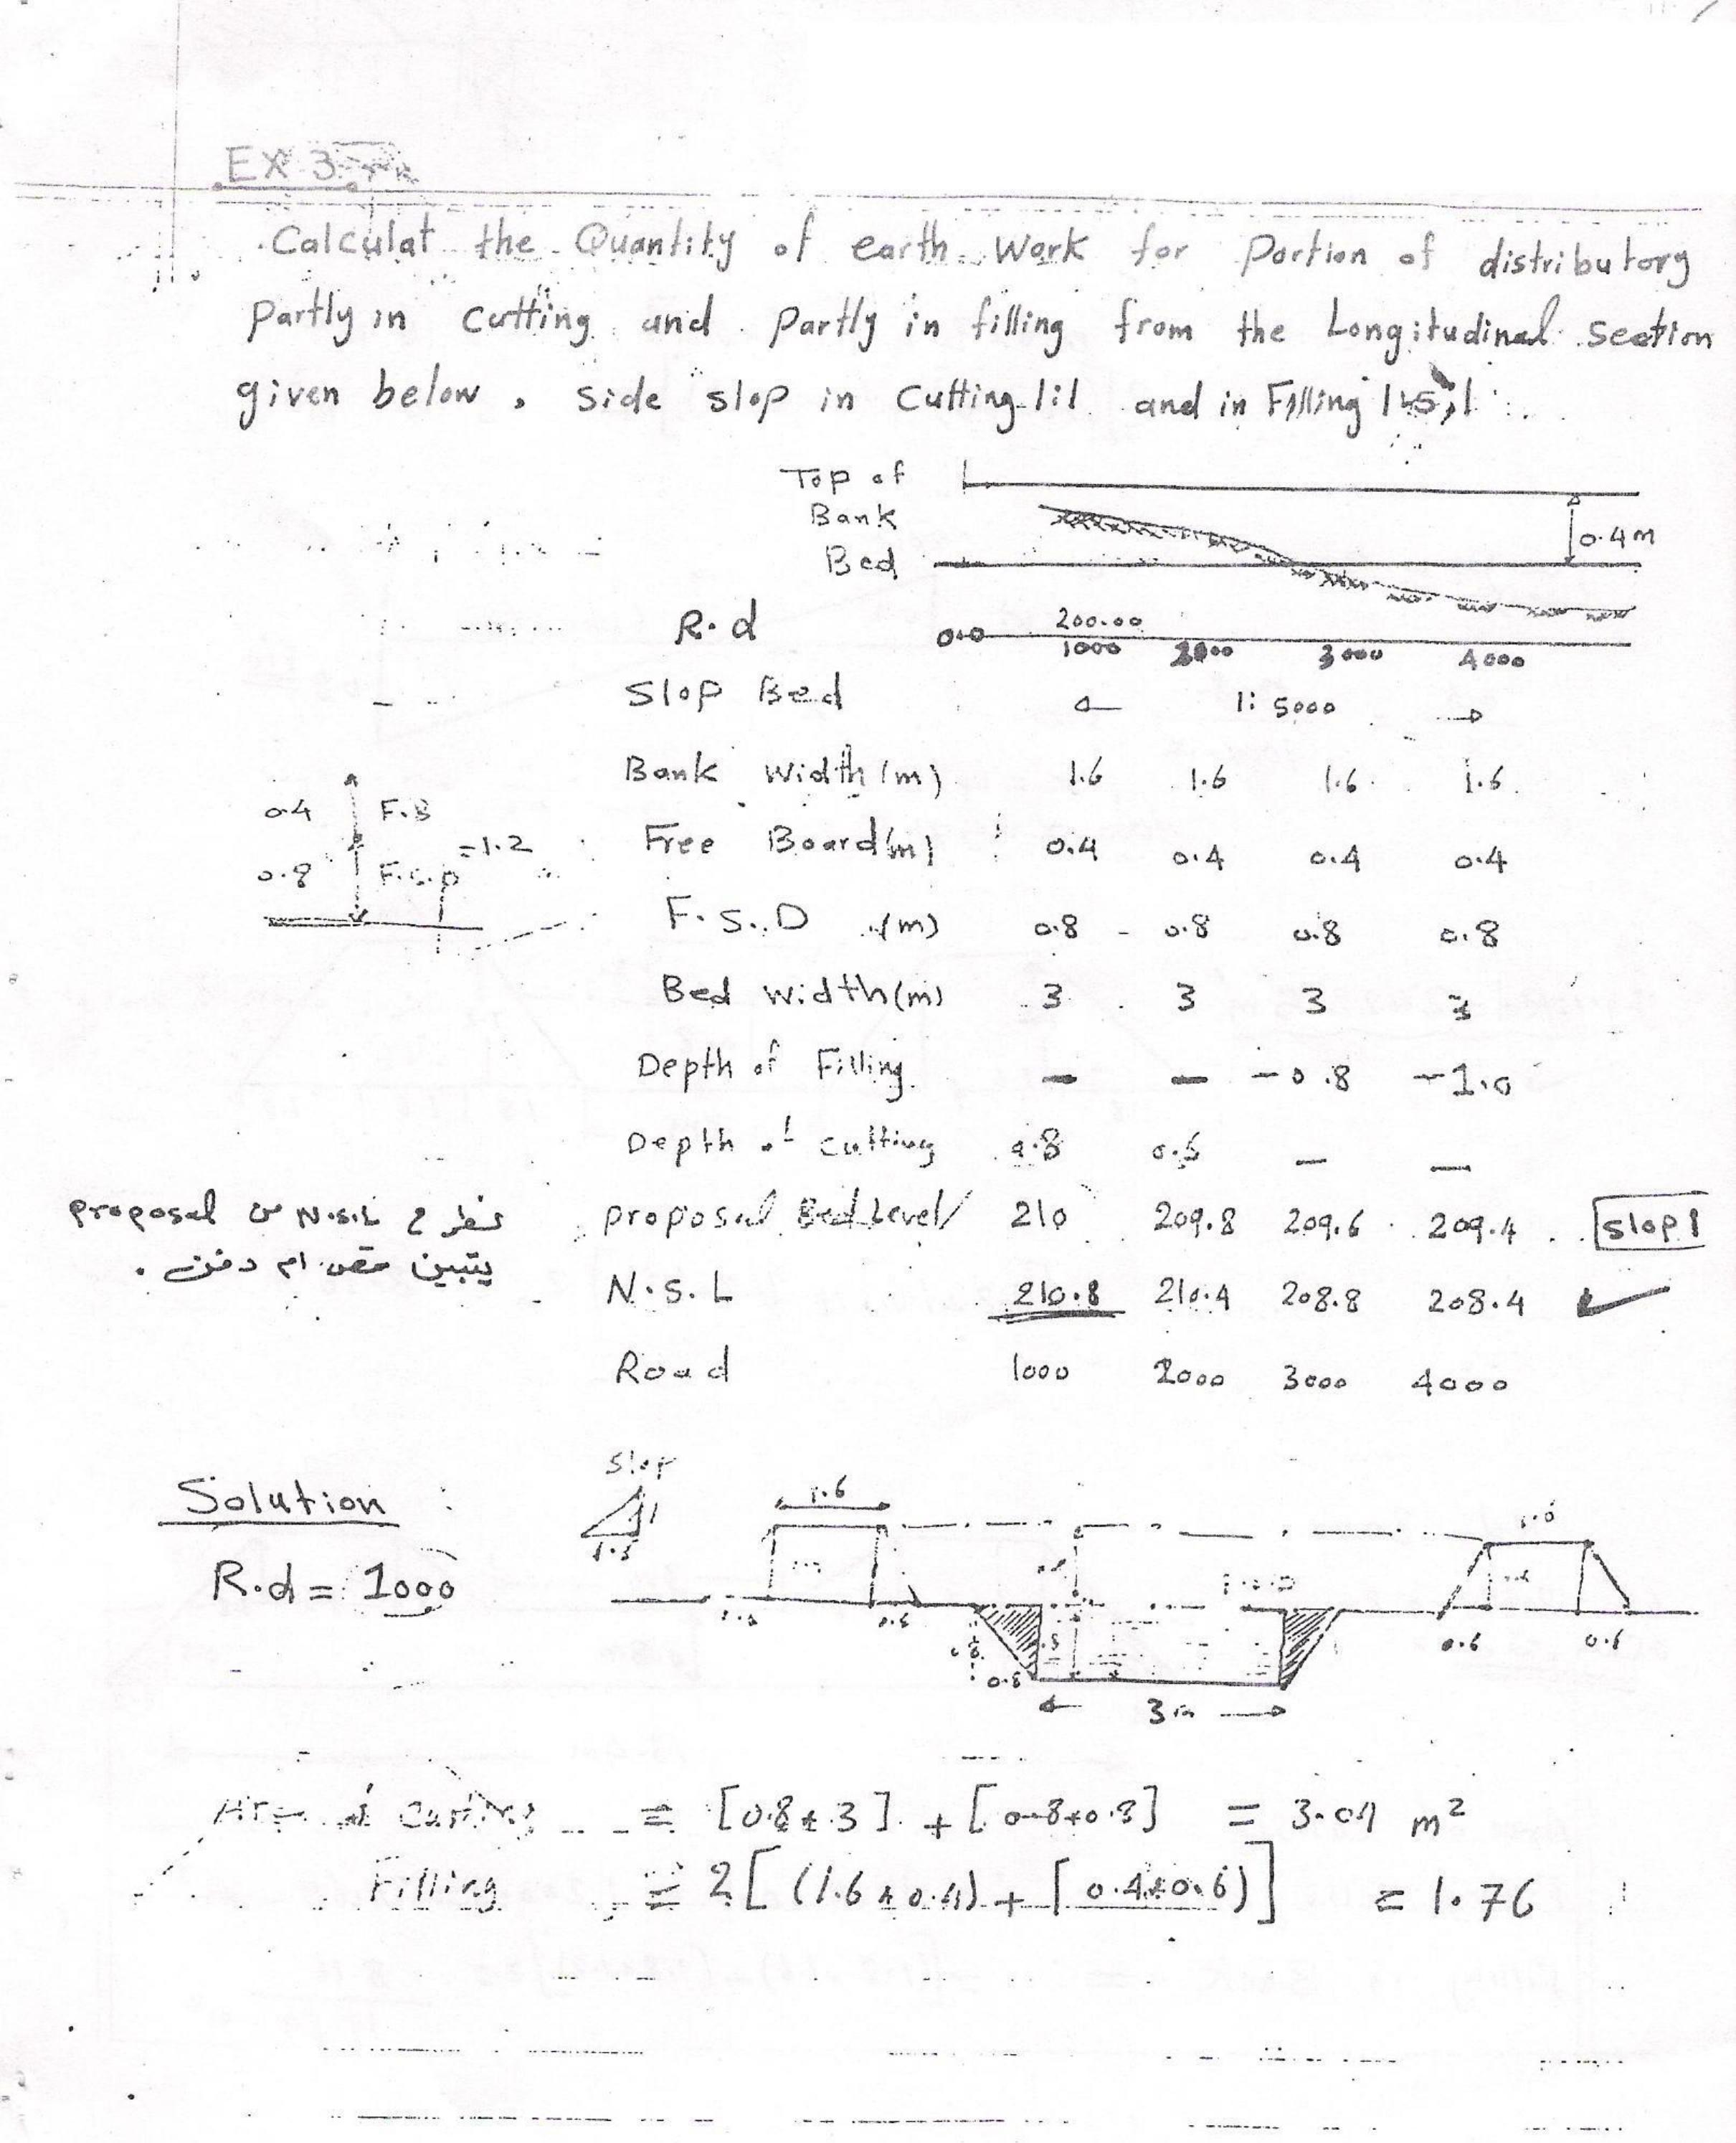 EX 3
Calculat the Quantity of earth Work for Portion of distributory
Partly in cutting and Partly in filling from the Longitudinal Section
given below, Side slop in Cutting 1:1 and in Filling 1.5:1
Top of
Bank
0.4m
Bed
R.d 0.0 200.00
1000 2000 3000 4000
Slop Bed 1: 5000
Bank Width (m) 1.6 1.6 1.6 1.6
0.4 F.B
Free Board(m) 0.4 0.4 0.4 0.4
=1.2
0.8 F.S.D
F.S.D (m) 0.8 0.8 0.8 0.8
Bed Width(m) 3 3 3 3
Depth of Filling — — -0.8 -1.0
Depth of cutting 0.8 0.6 — —
proposal Bed Level 210 209.8 209.6 209.4 slop
نطرح N.S.L من proposal
يتبين قص ام دفن .
N.S.L 210.8 210.4 208.8 208.4
Road 1000 2000 3000 4000
Slop
1
1.5
Solution :
1.6
R.d = 1000
0.6
0.6 0.6
0.8
3m
Cutting = [0.8*3] + [0.8*0.8] = 3.04 m²
Filling = 2[(1.6*0.4) + [0.4*0.6)] = 1.76